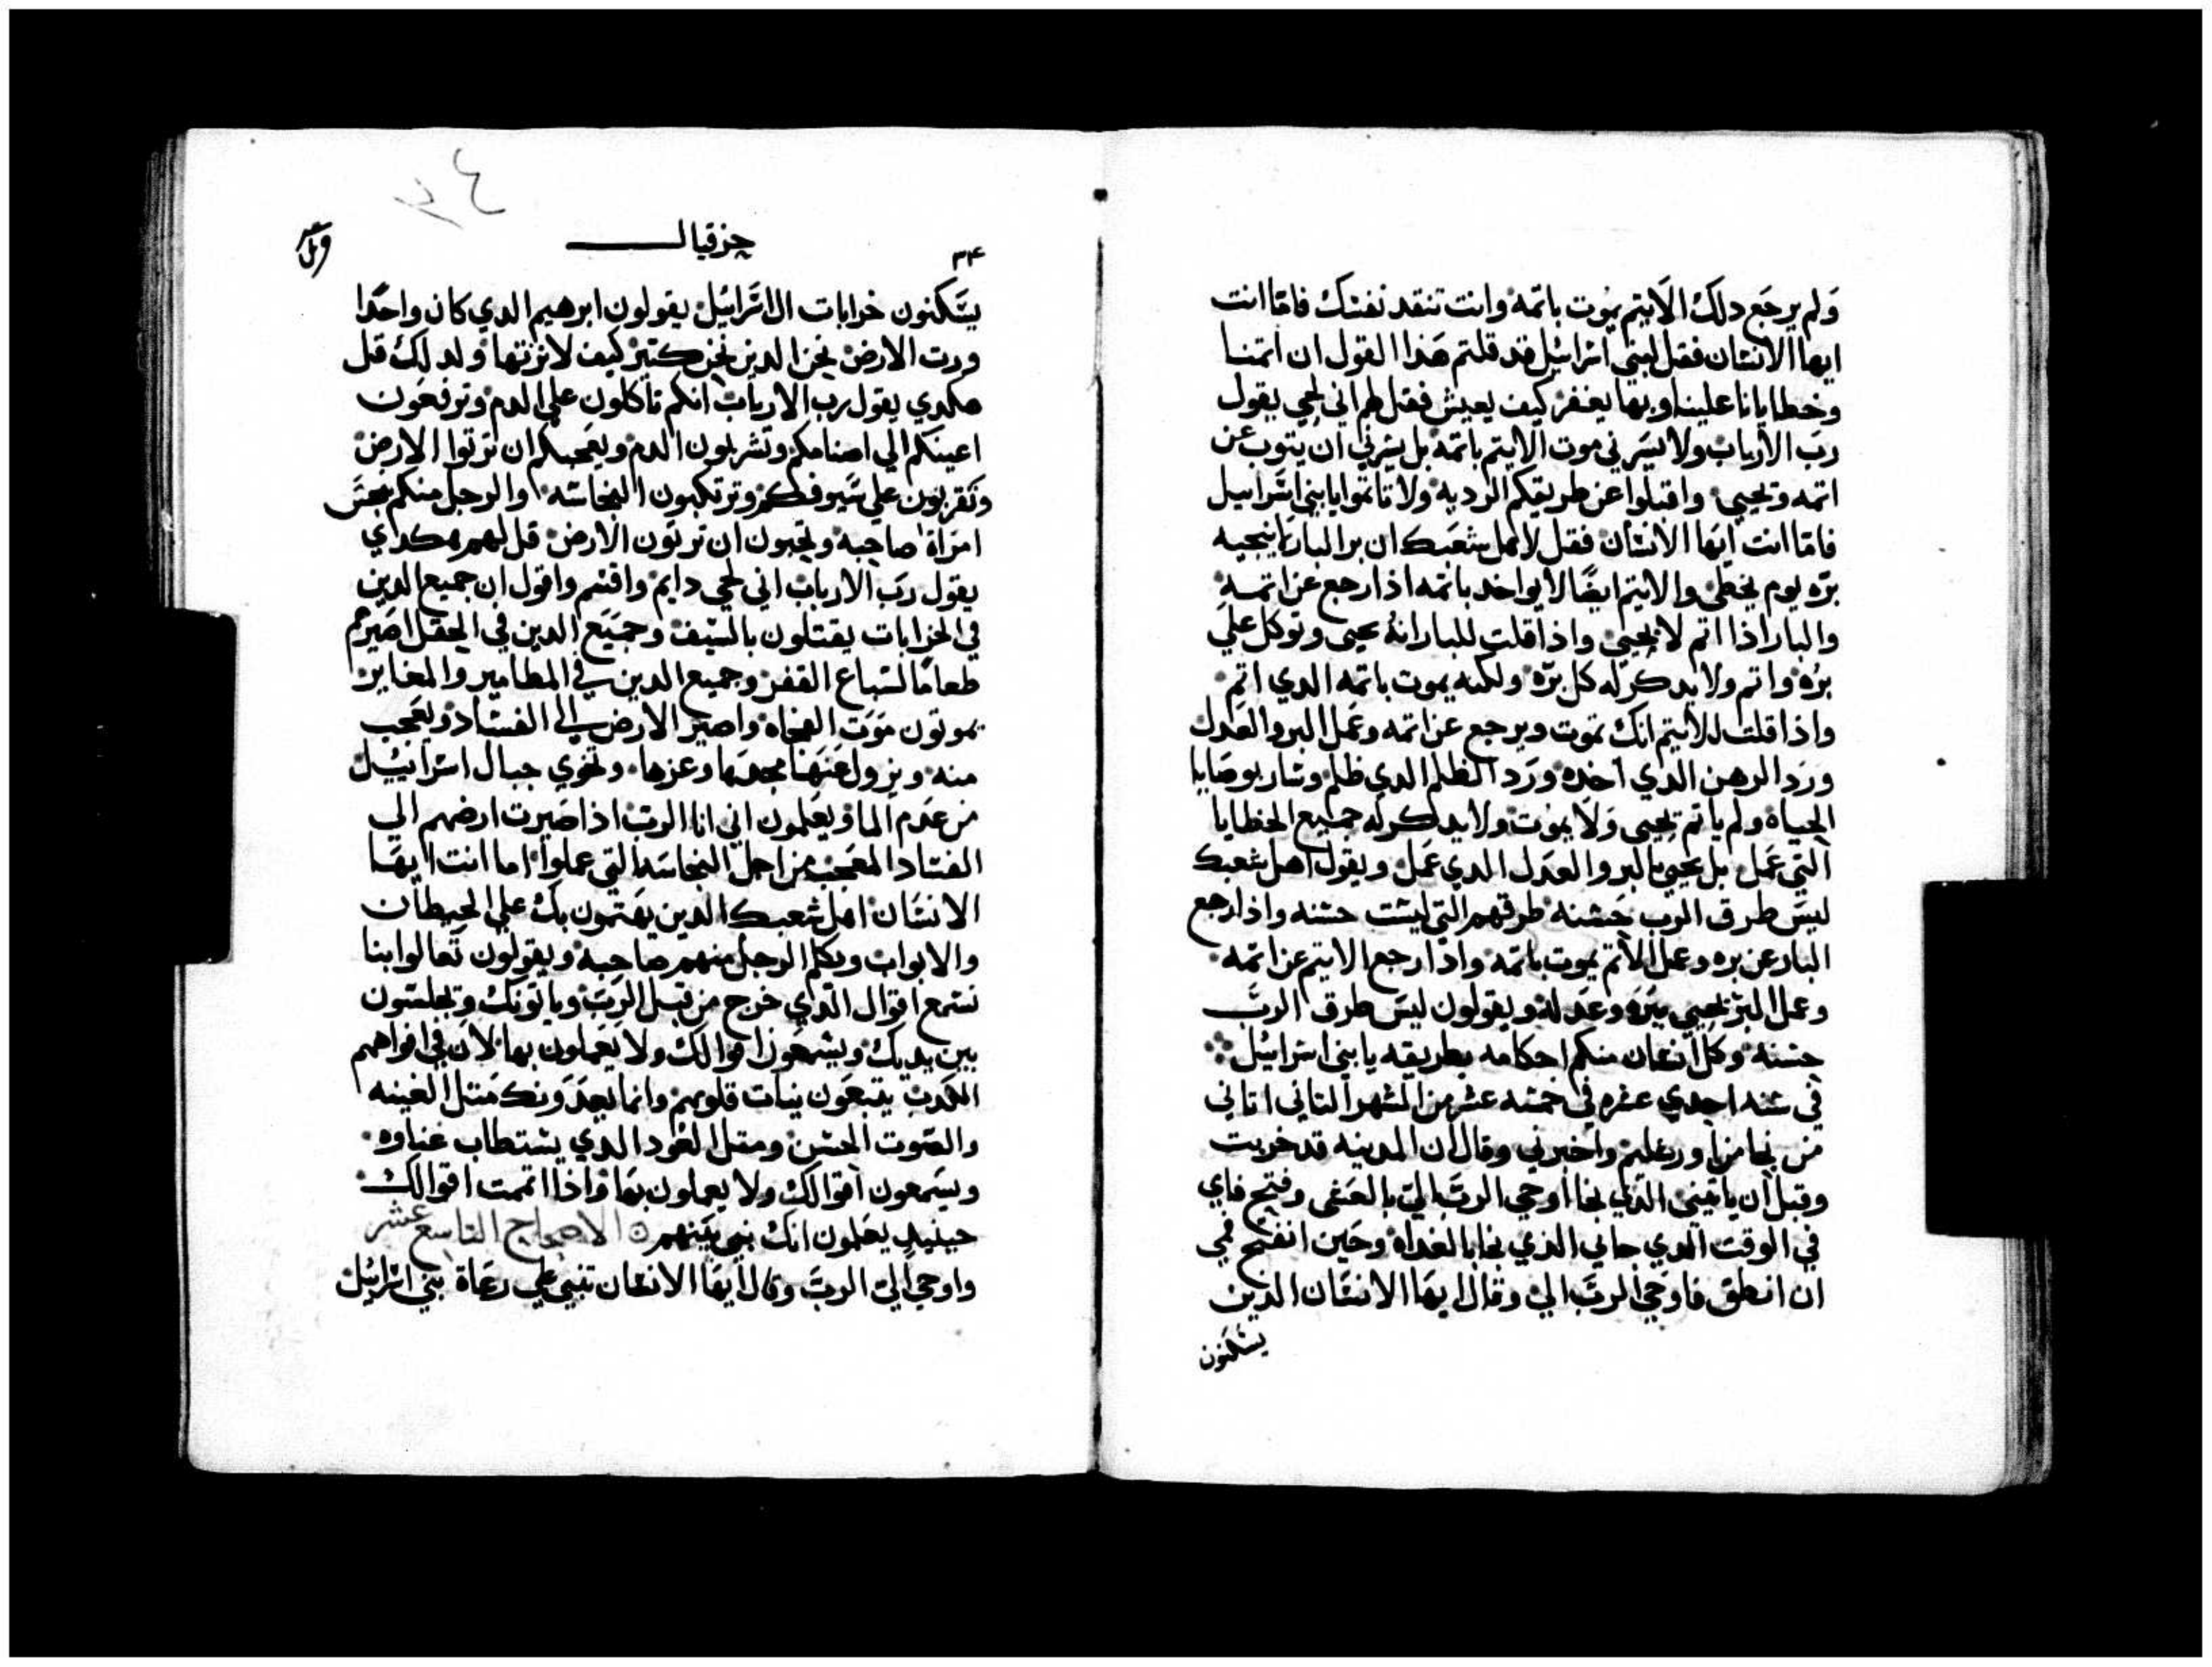 ولم يرجع دلك الاتيم يموت باتمه وانت تنقد نفسك فاما انت
ايها الانسان فقل لبني اسراييل قد قلتم هدا القول ان اتمنا
وخطايانا علينا وبها يغفر كيف يعيش فقل لهم اني لحي يقول
رب الارباب ولا يسرني موت الاتيم باتمه بل يسرني ان يتوب عن
اتمه ويحيي واقبلوا عن طريقكم الرديه ولا تاتموا يا بني اسراييل
فاما انت ايها الانسان فقل لاهل شعبك ان بر البار ما ينجيه
بره يوم يخطي والاتيم ايضا لا يواخد باتمه اذا رجع عن اتمه
والبار اذا اتم لا يحيي واذا قلت للبار انه يحيي وتوكل علي
بره واتم ولا يدكر له كل بره ولكنه يموت باتمه الدي اتم
واذا قلت للاتيم انك تموت ويرجع عن اتمه وعمل البر والعدل
ورد الرهن الدي اخده ورد الظلم الدي ظلم وسار بوصايا
الحياه ولم ياتم يحيي ولا يموت ولا يدكر له جميع الخطايا
التي عمل بل يحيي بالبر والعدل الدي عمل ويقول اهل شعبك
ليس طرق الرب حسنه طرقهم التي ليست حسنه واذا رجع
البار عن بره وعمل الاتم يموت باتمه واذا رجع الاتيم عن اتمه
وعمل البر يحيي ببره وعدله ويقولون ليس طرق الرب
حسنه وكل انسان منكم احكامه بطريقه يا بني اسراييل
في سنه احدي عشره في خمسه عشر من الشهر التاني اتاني
من نجا من اورشليم واخبرني وقال ان المدينه قد خربت
وقبل ان ياتيني الدي نجا اوحي الرب الي بالعشي وفتح فاي
في الوقت الدي جاني الدي نجا بالغداه وحين انفتح فمي
ان انطق فاوحي الرب الي وقال ايها الانسان الدين
يسكنون
٣٤
حزقيال
٣٤
يسكنون خرابات ال اسراييل يقولون ابرهيم الدي كان واحدا
ورت الارض نحن الدين نحن كتير كيف لا نرتها ولدلك قل
هكدي يقول رب الارباب انكم تاكلون علي الدم وترفعون
اعينكم الي اصنامكم وتشربون الدم ويعجبكم ان ترتوا الارض
وتقربون علي سيوفكم وترتكبون النجاسه والرجل منكم ينجس
امراة صاحبه وتحبون ان ترتون الارض قل لهم هكدي
يقول رب الارباب اني لحي دايم واقسم واقول ان جميع الدين
في الخرابات يقتلون بالسيف وجميع الدين في الحقل اصيرهم
طعاما لسباع القفر وجميع الدين في المطامير والمغاير
يموتون موت الفجاه واصير الارض الي الفساد ويعجب
منه ويزول عنها مجدها وعزها وتخوي جبال اسراييل
من عدم الما ويعلمون اني انا الرب اذا صيرت ارضهم الي
الفساد المعجب من اجل النجاسه التي عملوا اما انت ايها
الانسان اهل شعبك الدين يهتمون بك علي الحيطان
والابواب ويكلم الرجل منهم صاحبه ويقولون تعالوا بنا
نسمع اقوال الدي خرج من قبل الرب وياتونك ويجلسون
بين يديك ويسمعون اقوالك ولا يعملون بها لان في افواههم
الكدب يتبعون نيات قلوبهم وانما يعدونك متل الغينه
والصوت الحسن ومتل العود الدي يستطاب غناوه
ويسمعون اقوالك ولا يعملون بها واذا اتممت اقوالك
حينيد يعلمون انك نبي بينهم الاصحاح التاسع عشر
واوحي الي الرب وقال ايها الانسان تنبي علي رعاة بني اسراييل